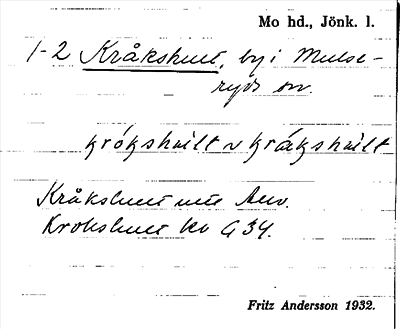 Mo hd., Jönk. l.
1-2 Kråkshult, by i Mulse-
ryds sn.
krókshult v kråkshult
Kråkshult
Krokshult kv G 34.
Fritz Andersson 1932.